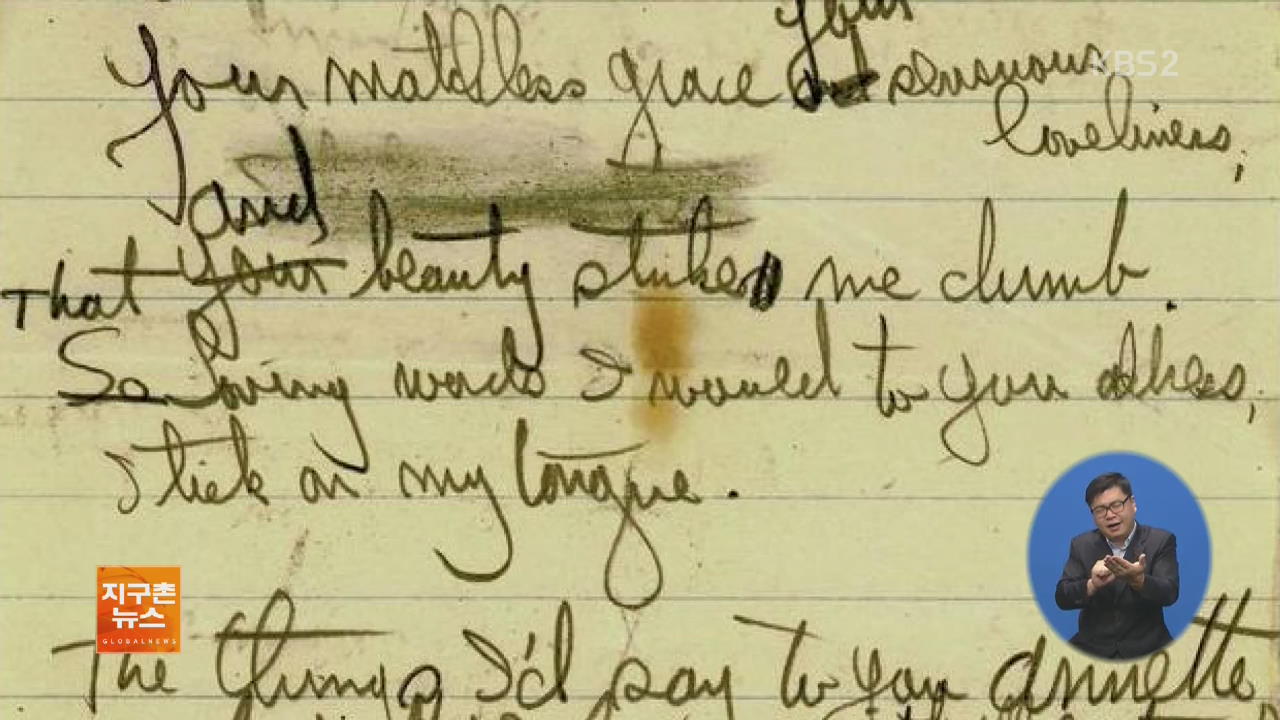 your
Your matchless grace and sensuous
loveliness,
and
That your beauty strikes me dumb.
So loving words I would to you
stick on my tongue.
The things I'd say to you Annette
KBS2
지구촌
뉴스
GLOBALNEWS